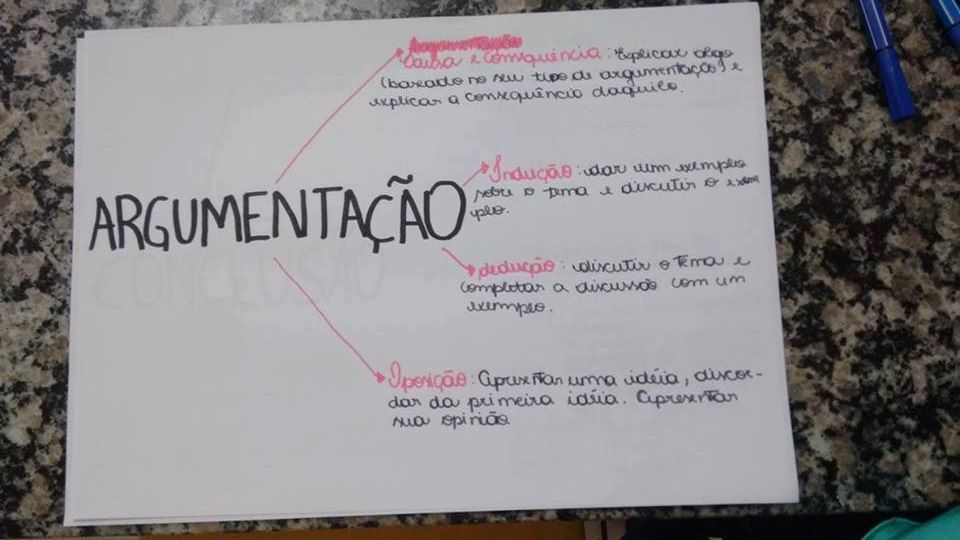 Causa e Consequência: Explicar algo
(baseado no seu tipo de argumentação) e
explicar a consequência daquilo.
ARGUMENTAÇÃO
Indução: dar um exemplo
sobre o tema e discutir o exem
plo.
CONCLUSÃO
dedução: discutir o Tema e
completar a discussão com um
exemplo.
Oposição: Apresentar uma idéia, discor-
dar da primeira idéia. Apresentar
sua opinião